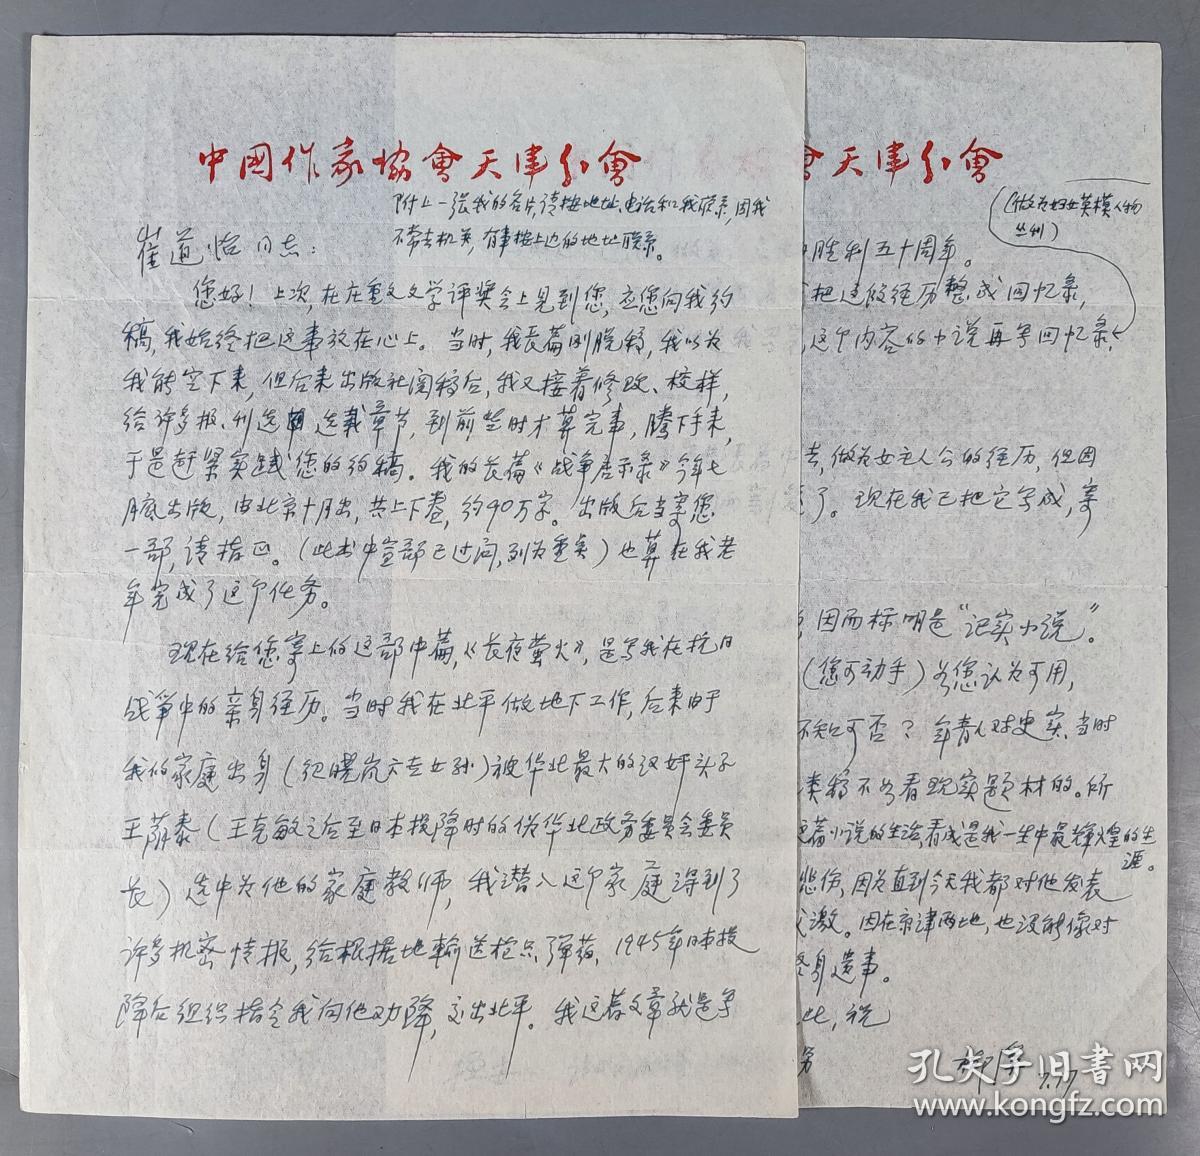 中國作家協會天津分會
附上一张我的名片,请按地址、电话和我联系,因我
不常去机关,有事按上边的地址联系。
崔道怡同志:
您好!上次,在庄重文文学评奖会上见到您,应您向我约
稿,我始终把这事放在心上。当时,我长篇刚脱稿,我以为
我能空下来,但后来出版社阅稿后,我又接着修改、校样,
给许多报、刊选载章节,到前些时才算完事,腾下手来,
于是赶紧实践您的约稿。我的长篇《战争启示录》今年七
月底出版,由北京十月出,共上下卷,约90万字。出版后当寄您
一部,请指正。(此书中宣部已过问,列为重点)也算在我老
年完成了这个任务。
现在给您寄上的这部中篇,《长夜萤火》,是写我在抗日
战争中的亲身经历。当时我在北平做地下工作,后来由于
我的家庭出身(纪晓岚六世女孙)被华北最大的汉奸头子
王荫泰(王克敏之后至日本投降时的伪华北政务委员会委员
长)选中为他的家庭教师,我潜入这个家庭得到了
许多机密情报,给根据地输送枪只弹药,1945年日本投
降后组织指令我向他劝降,交出北平。我这篇文章就是写
會天津分會
(做为妇女英模人物
丛刊)
胜利五十周年。
把这段经历整成回忆录,
这个内容的小说再写回忆录,
去,做为女主人公的经历,但因
了。现在我已把它写成,寄
,因而标明是“记实小说”。
(您可动手)若您认为可用,
不知可否?年青人对史实、当时
类稿不如看现实题材的。所
篇小说的生活,看成是我一生中最辉煌的生
涯。
悲伤,因为直到今天我都对他发表
感激。因在京津两地,也没能像对
终身遗事。
此,祝
柳溪
7.17
孔夫子旧书网
www.kongfz.com